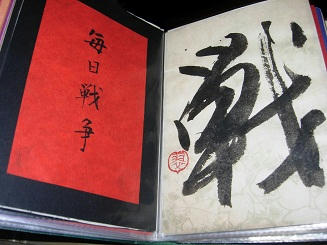 毎日戦争
戦